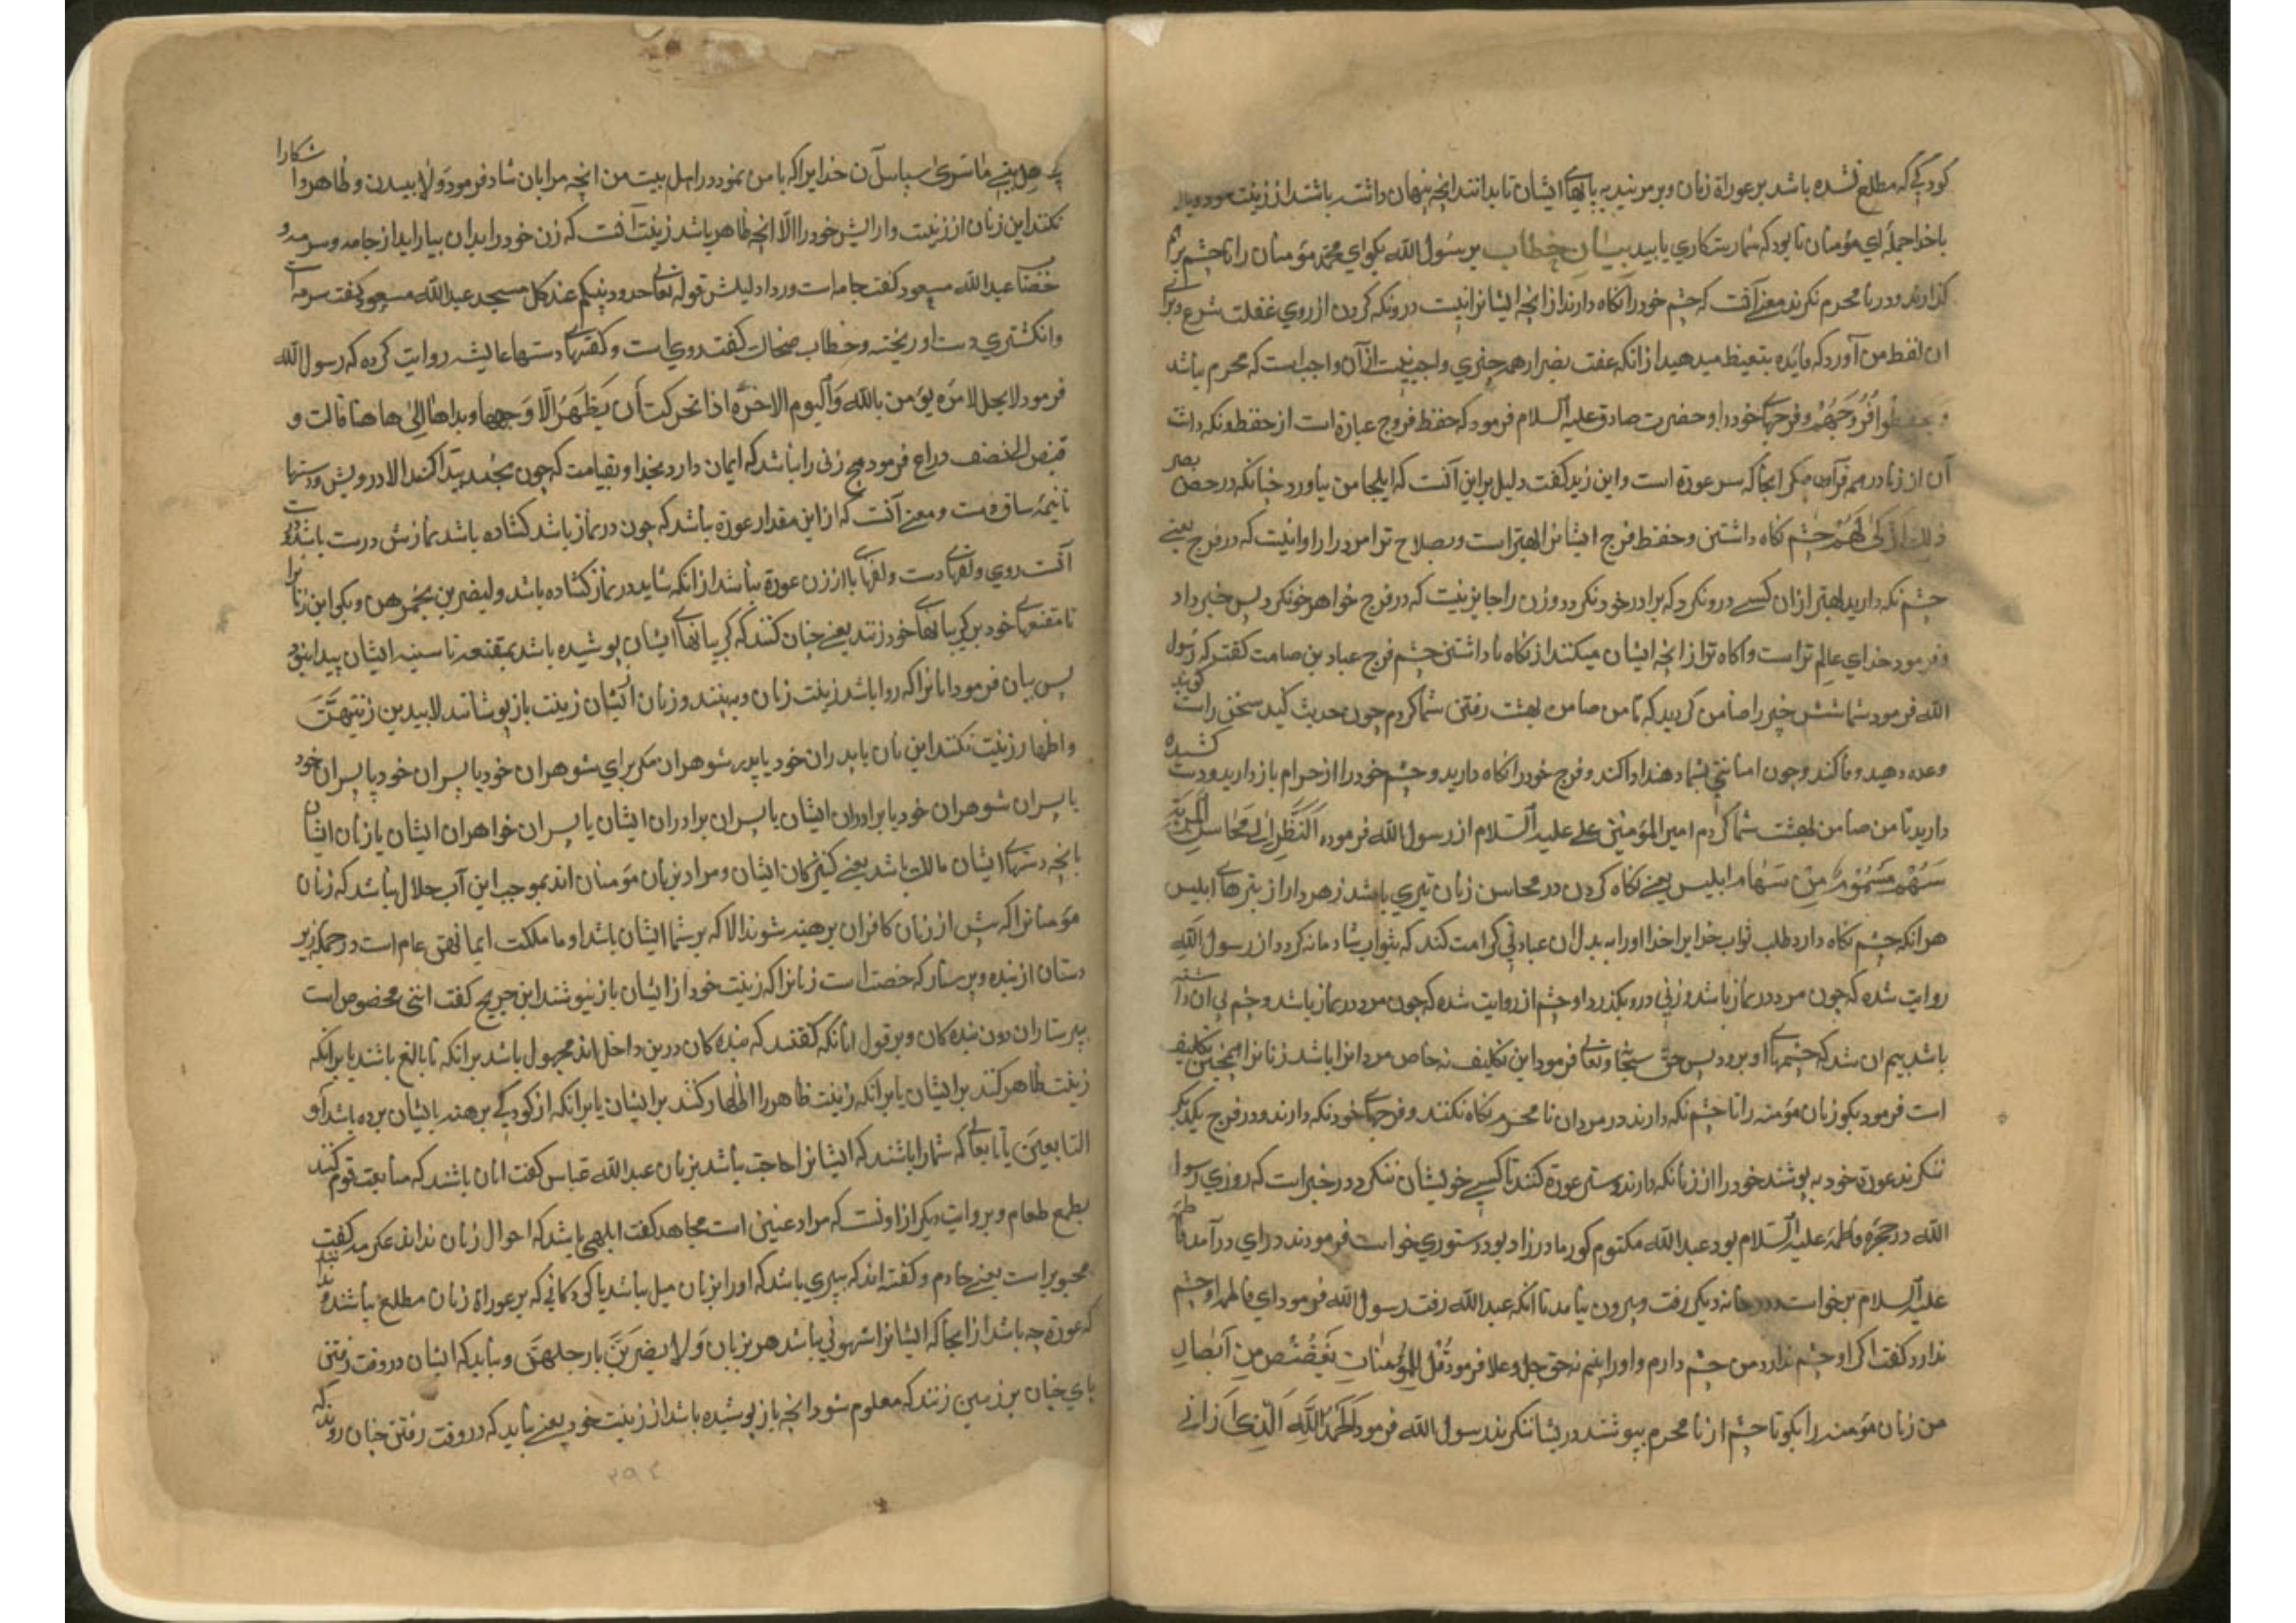 کودکی که مطلع نشده باشد بر عوراة زنان و بر مزنید به پایهاٴ ایشان تا بدانند انچه پنهان داشته باشند از زینت
باخدا جملهٔ ای مؤمنان تا بود که شما رستکاری یابید بیان خطاب بر سُول الله بکو ای محمد مؤمنان را تا چشم برهم
کذارند و در نا محرم نکرند معنے آنست که چشم خود را نکاه دارند از انچه ایشانرا نیست درو نکه کردن از روی غفلت شرع و برای
ان لفظ من آورد که فایده بتعیظ میدهید از انکه عفت بصر از همه چیزی واجب نیست از آن واجب است که محرم باشد
وَ یحفظوا فُرُوجَهُمْ و فرجهاے خود را و حضرت صادق علیه السلام فرمود که حفظ فروج عبارة است از حفظ ونکه داشت
آن از زنا در همه قرآن مکر اینجا که ستر عورة است و ابن زید کفت دلیل بر این آنست که اینجا من نیاورد چنانکه در حفظ بصر
ذلِكَ اَزْكٰی لَهُمْ چشم نکاه داشتن و حفظ فرج ایشانرا بهتر است و بصلاح تر امرد را روا نیست که در فرج یعنے
چشم نکه دارید بهتر از ان کسے درو نکرد که برادر خود نکرد و زن را جایز نیست که در فرج خواهر خو نکرد پس خبر داد
و فرمود خدای عالم تر است و اکاه تر از انچه ایشان میکنند از نکاه نا داشتن چشم فرج عباد بن صامت کفت که رسُول
الله فرمود شما شش چیز را ضامن کردید که تا من ضامن بهشت رفتن شما کردم چون حدیث کنید سخن راست کوئید
وعده دهید وفا کند و چون امانتی بشما دهند ادا کند و فرج خود را نکاه دارید و چشم خود را از حرام باز دارید و دست کشیده
دارید تا من ضامن بهشت شما کردم امیر المؤمنین علے علیه السّلام از رسول الله فرموده اَلنَّظرُ اِلٰی مَحَاسِنِ المَرْئَةِ
سَهْمٌ مَسْمُوْمٌ مِنْ سِهَامِ ابلیس یعنے نکاه کردن در محاسن زنان تیری باشد زهردار از تیرهاے ابلیس
هر انکه چشم نکاه دارد طلب ثواب خدایرا خدا او را به بدل ان عبادتی کرامت کند که بثواب شادمانه کردد از رسول الله
روایت شده که چون مرد در نماز باشد و زنی درو بکذرد او چشم از روایت شده که چون مرد در نماز باشد و چشم پی ان داشته
باشد بیم ان شد که چشمهاے او برود پس حق سبحا وتعالی فرمود این تکلیف نه خاص مردانرا باشد زنانرا همچنین تکلیف
است فرمود بکو زنان مؤمنه را تا چشم نکه دارند در مردان نا محرم نکاه نکنند و فرجهاے خود نکه دارند و در فرج یکدیکر
ننکرند عورة خود به پوشند خود را از زنا نکه دارند و ستر عورة کنند تا کسے خویشان ننکرد در خبر است که روزی رسول
الله در حجرهٔ فاطمه علیه السّلام بود عبد الله مکتوم کور مادرزاد بود دستوری خواست فرمودند درای درآمد فاطمه
علیه السلام بر خواست و در خانه دیکر رفت و بیرون نیامد تا انکه عبد الله رفت رسول الله فرمود ای فاطمه او چشم
ندارد کفت اکر او چشم ندارد من چشم دارم و او را بینم نه حق جل و علا فرمود قُلْ لِلمُؤْمِنَاتِ یَغْضُضْنَ مِنْ اَبْصَارِ
من زنان مؤمنه را بکو تا چشم از نا محرم بپوشند در یشان ننکرند رسول الله فرمود اَلحَمْدُ لِلّٰهِ الَّذِی اَرَانِی
شکارا
هل بیتی مٰا سَرَّنی سپاس آن خدایرا که با من نمود در اهل بیت من انچه مرا بان شاد فرمود وَلا یبدین و ظاهر و
نکنند این زنان از زینت و ارایش خود را الّا انچه ظاهر باشد زینت آنست که زن خود را بدان بیاراید از جامه و سرمه و
خضاب عبد الله مسعود کفت جامه است و ردا دلیلش قوله تعالی خذوا زینتکم عند کل مسجد عبد الله مسعود کفت سرمه است
و انکشتری دست اورنجنه و خطاب ضحاک کفت روی است و کفهاے دستها عایشه روایت کرده که رسول الله
فرمود لا یحل لامرة یؤمن بالله وَالیوم الاخره اذا تحرکت أن یَظهَرُ اَلّا وَجهها ویداها اِلیٰ هاهنا قالت و
قبض النصف دراع فرمود هیچ زنی را نباشد که ایمان دارد بخدا و بقیامت که چون بجنبد پیدا کند الا در ویش و دستها
تا نیمهٔ ساق دست و معنے آنست که از این مقدار عورة نباشد که چون در نماز باشد کشاده باشد نمازش درست باشد
آنست روی و کفهاے دست و کفهاے پا از زن عورة نباشد از انکه شاید در نماز کشاده باشد ولیضربن بخمرهن و بکو این زنانرا
تا مقنعهاے خود بر کریبانهاے خود زنند یعنے چنان کنند که کریبانهاٴ ایشان پوشیده باشد بمقنعه تا سینه ایشان پیدا نبود
پس بیان فرمود انانرا که روا باشد زینت زنان و ببینند و زنان ایشان زینت باز پوشانند لا یبدین زینتهنّ
و اظهار زینت نکنند این زنان با پدران خود یا پدر شوهران مکر برای شوهران خود یا پسران خود یا پسران خود
یا پسران شوهران خود یا برادران ایشان یا پسران برادران ایشان یا پسران خواهران ایشان یا زنان ایشان
یا انچه دستهاے ایشان مالک باشد یعنے کنیزکان ایشان و مراد بزنان مؤمنان اند بموجب این آیت حلال نباشد که زنان
مؤمنانرا که پیش از زنان کافران برهنه شوند الا که پرستار ایشان باشد او ما ملکت ایمانهن عام است در جمله زیر
دستان از بنده و پرستار که رخصت است زنانرا که زینت خود از ایشان باز نپوشند ابن جریح کفت انثی مخصوص است
بپرستاران دون بنده کان و بر قول انانکه کفتند که بنده کان درین داخل اند محمول باشد برانکه نا بالغ باشند یا برانکه
زینت ظاهر کنند بر ایشان یا برانکه زینت ظاهر را اظهار کنند بر ایشان یا برانکه از کودکی برهنه با ایشان برده باشد اَو
التابعینَ یا تابعاے که شما را باشند که ایشانرا حاجت نباشد بزنان عبد الله عباس کفت انان باشند که متابعت قوم کنند
بطمع طعام و بروایت دیکر از اونست که مراد عنین است مجاهد کفت ابلهی باشد که احوال زنان نداند عکرمه کفت
مجبوبرا است یعنے خادم و کفته اند که پیری باشد که او را بزنان میل نباشد یا کودکانی که بر عوراة زنان مطلع نباشند
که عورة چه باشد از اینجا که ایشانرا شهوتی نباشد هر بزنان وَلا یضربنَ بارجلهنّ و نباید که ایشان در وقت رفتن
پای چنان بر زمین زنند که معلوم شود انچه باز پوشیده باشد از زینت خود یعنے نباید که در وقت رفتن چنان روند که
۳۹۴